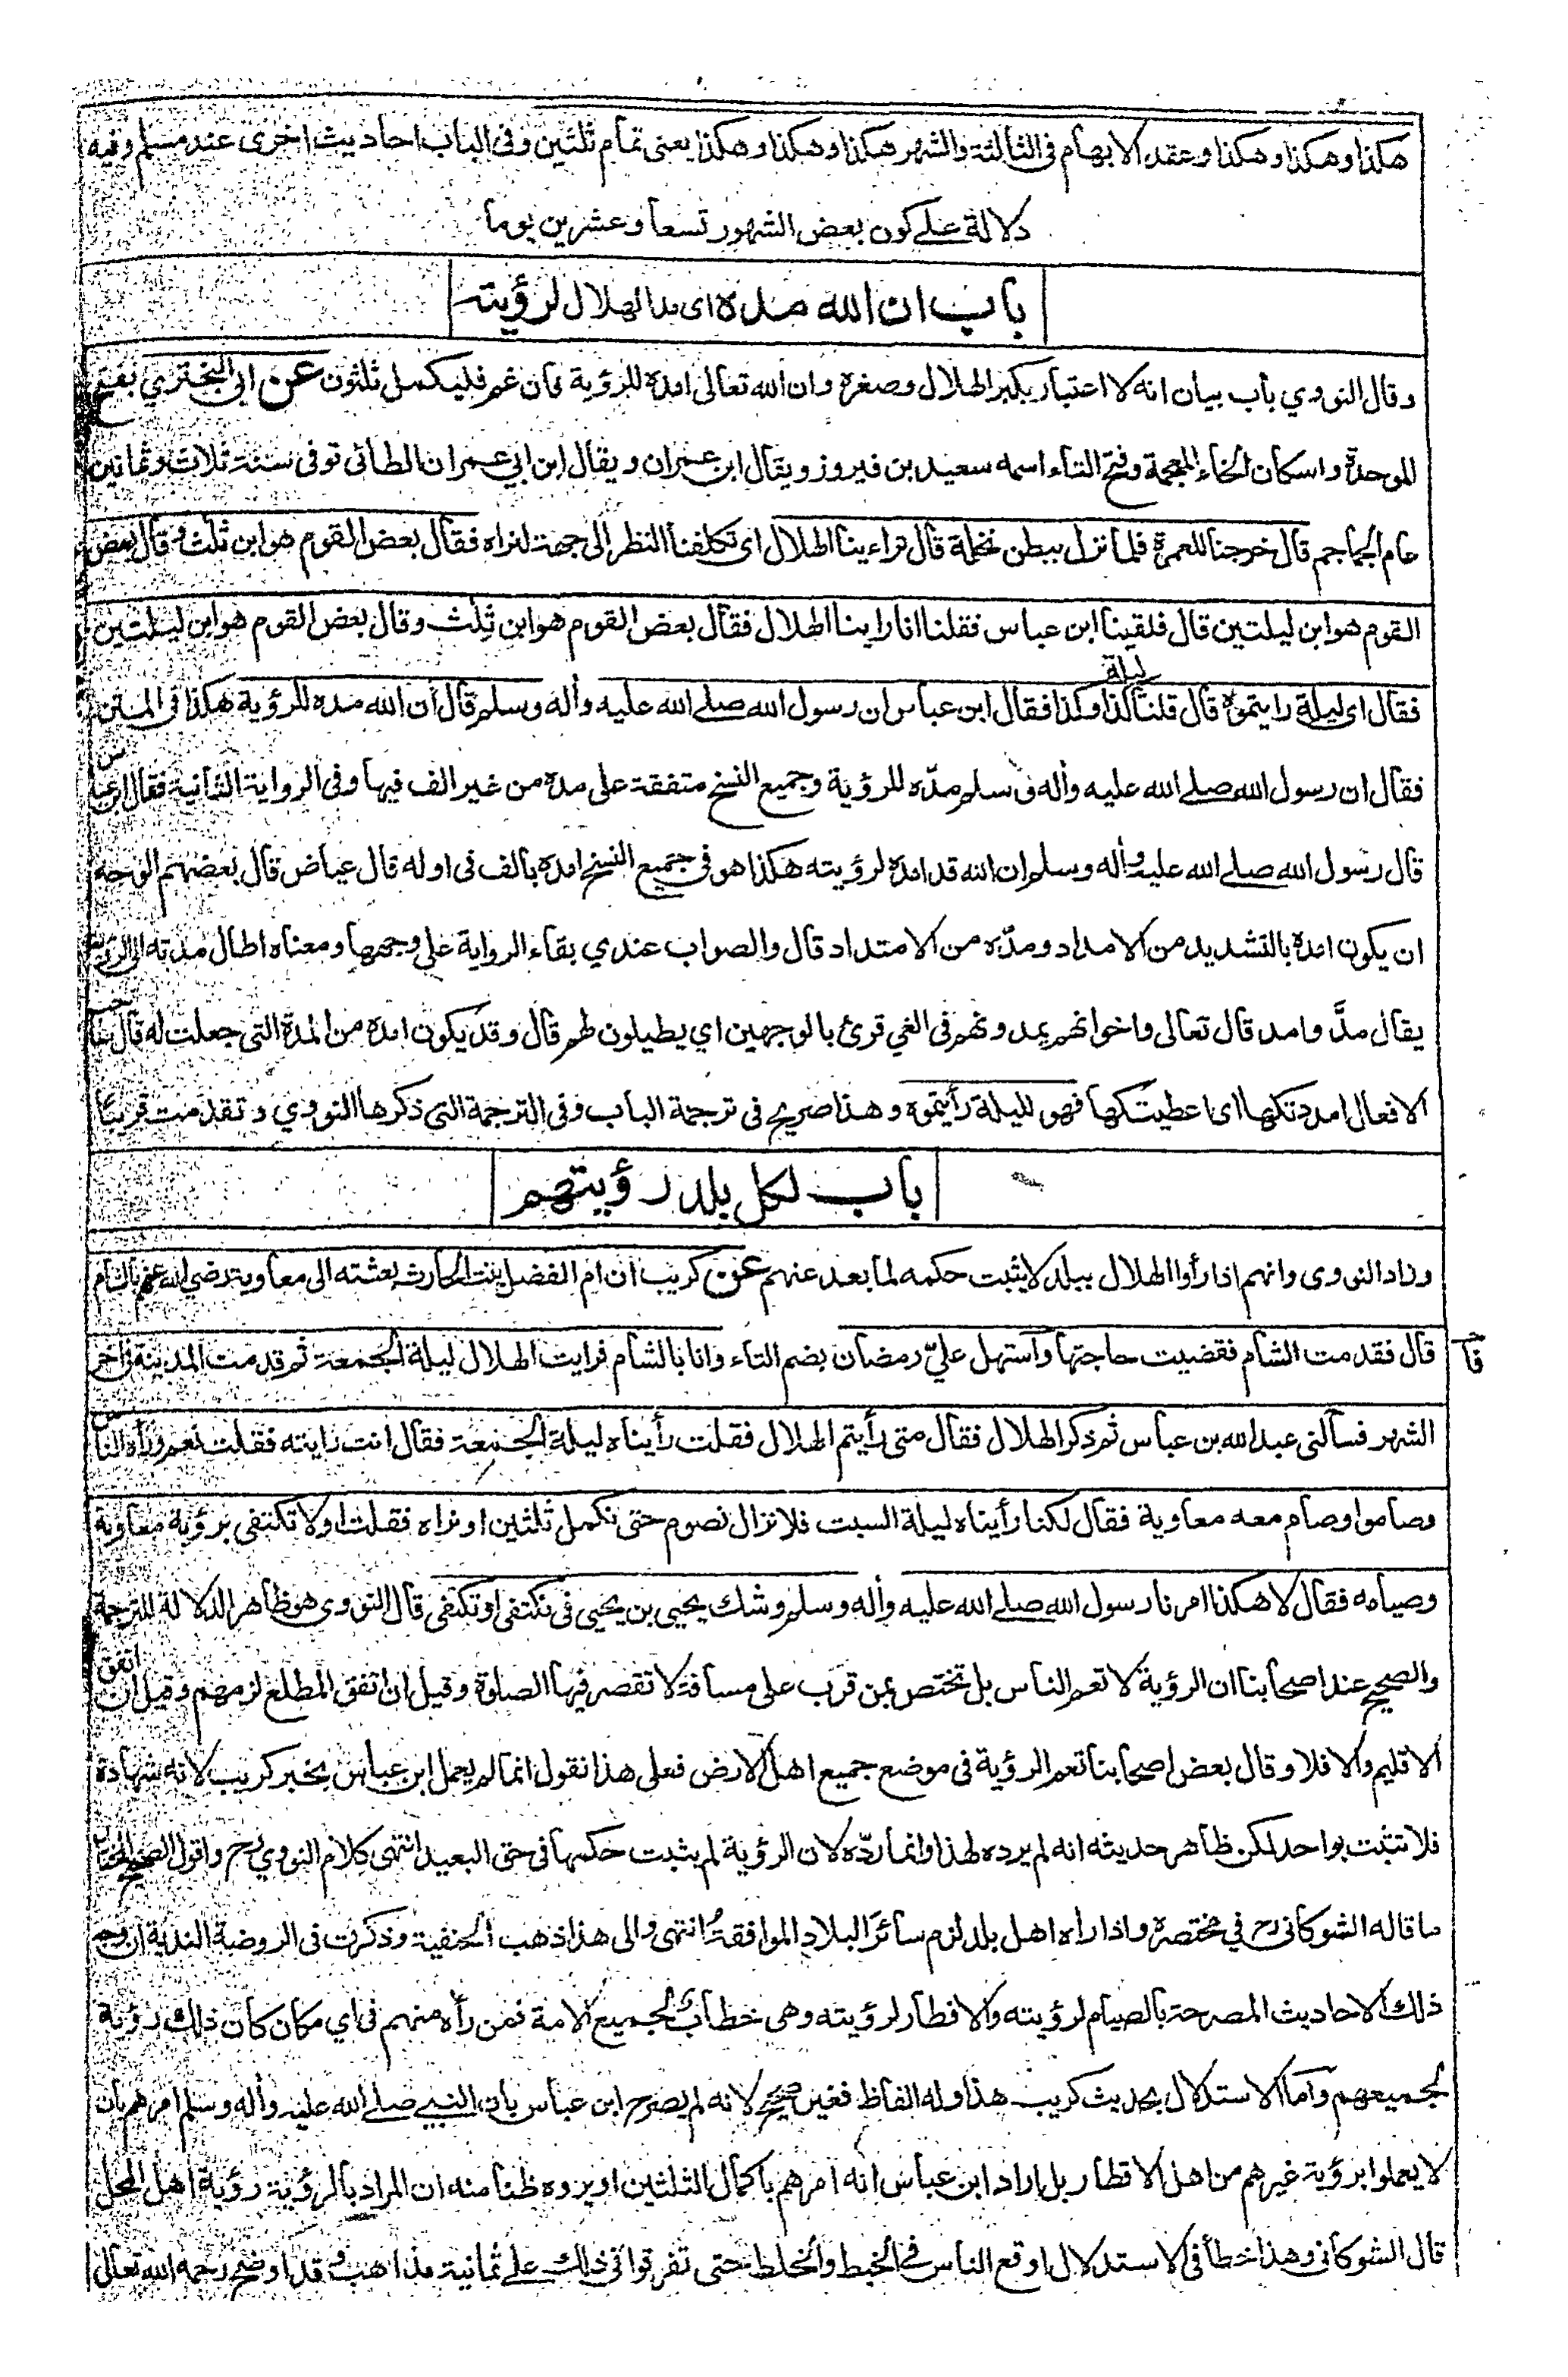 هكذا وهكذا وهكذا وعقد الابهام في الثالثة والشهر هكذا وهكذا وهكذا يعنى تمام ثلثين وفى الباب احاديث اخرى عند مسلم وفيه
دلالة على كون بعض الشهور تسعا وعشرين يوما
باب ان الله مده اى مد الهلال لرؤيته
وقال النووي باب بيان انه لا اعتبار بكبر الهلال وصغره وان الله تعالى امده للرؤية فان غم فليكمل ثلثون عن ابى البختري بفتح
الموحدة واسكان الخاء المعجمة وفتح التاء اسمه سعيد بن فيروز ويقال ابن عمران ويقال ابن ابي عمران الطائى توفى سنة ثلاث وثمانين
عام الجماجم قال خرجنا للعمرة فلما نزل ببطن نخلة قال تراءينا الهلال اى تكلفنا النظر الى جهة لنراه فقال بعض القوم هو ابن ثلث وقال بعض
القوم هو ابن ليلتين قال فلقينا ابن عباس فقلنا انا راينا الهلال فقال بعض القوم هو ابن ثلث وقال بعض القوم هو ابن ليلتين
فقال اى ليلة رايتموه قال قلنا ليلة كذا وكذا فقال ابن عباس ان رسول الله صلے الله عليه وأله وسلم قال ان الله مده للرؤية هكذا فى المتن
فقال ان رسول الله صلے الله عليه وأله وسلم مدّه للرؤية وجميع النسخ متفقة على مده من غير الف فيها وفى الرواية الثانية فقال ابن عباس
قال رسول الله صلے الله عليه وأله وسلم ان الله قد امده لرؤيته هكذا هو فى جميع النسخ امده بالف فى اوله قال عياض قال بعضهم الوجه
ان يكون امده بالتشديد من الامداد ومدّه من الامتداد قال والصواب عندي بقاء الرواية على وجهها ومعناه اطال مدته الى الرؤية
يقال مدَّ وامد قال تعالى واخوانهم يمدونهم فى الغي قرئ بالوجهين اي يطيلون لهم قال وقد يكون امده من المدة التى جعلت له قال صاحب
الافعال امددتكها اى اعطيتكها فهو لليلة رأيتموه وهذا صريح فى ترجمة الباب وفى الترجمة التى ذكرها النووي وتقدمت قريبًا
باب لكل بلد رؤيتهم
وزاد النووى وانهم اذا رأوا الهلال ببلد لا يثبت حكمه لما بعد عنهم عن كريب ان ام الفضل بنت الحارث بعثته الى معاوية رضي الله عنهم بالشام
قال فقدمت الشام فقضيت حاجتها واستهل عليّ رمضان بضم التاء وانا بالشام فرايت الهلال ليلة الجمعة ثم قدمت المدينة فى اخر
الشهر فسألنى عبد الله بن عباس ثم ذكر الهلال فقال متى رأيتم الهلال فقلت رأيناه ليلة الجمعة فقال انت رايته فقلت نعم ورأه الناس
وصاموا وصام معه معاوية فقال لكنا رأيناه ليلة السبت فلا نزال نصوم حتى نكمل ثلثين او نراه فقلت اولا تكتفى برؤية معاوية
وصيامه فقال لا هكذا امرنا رسول الله صلے الله عليه وأله وسلم وشك يحيى بن يحيى فى نكتفى او تكتفى قال النووى هو ظاهر الدلالة للترجمة
والصحيح عند اصحابنا ان الرؤية لا تعم الناس بل تختص بمن قرب على مسافة لا تقصر فيها الصلوة وقيل ان اتفق المطلع لزمهم وقيل ان اتفق
الاقليم والا فلا وقال بعض اصحابنا تعم الرؤية فى موضع جميع اهل الارض فعلى هذا نقول انما لم يعمل ابن عباس بخبر كريب لانه شهادة
فلا تثبت بواحد لكن ظاهر حديثه انه لم يرده لهذا وانما ردّه لان الرؤية لم يثبت حكمها فى حق البعيد انتهى كلام النووي رح واقول الصحيح المختار
ما قاله الشوكانى رح في مختصره واذا راه اهل بلد لزم سائر البلاد الموافقة انتهى والى هذا ذهب الحنفية وذكرت فى الروضة الندية ان وجه
ذلك الاحاديث المصرحة بالصيام لرؤيته والافطار لرؤيته وهى خطاب لجميع الامة فمن رأه منهم فى اي مكان كان ذلك رؤية
لجميعهم واما الاستدلال بحديث كريب هذا وله الفاظ فغير صحيح لانه لم يصرح ابن عباس بان النبي صلے الله عليه وأله وسلم امرهم بان
لا يعملوا برؤية غيرهم من اهل الاقطار بل اراد ابن عباس انه امرهم باكمال الثلثين او يروه ظنا منه ان المراد بالرؤية رؤية اهل المحل
قال الشوكانى وهذا خطأ فى الاستدلال اوقع الناس فى الخبط والخلط حتى تفرقوا فى ذلك على ثمانية مذاهب وقد اوضح رحمه الله تعالى